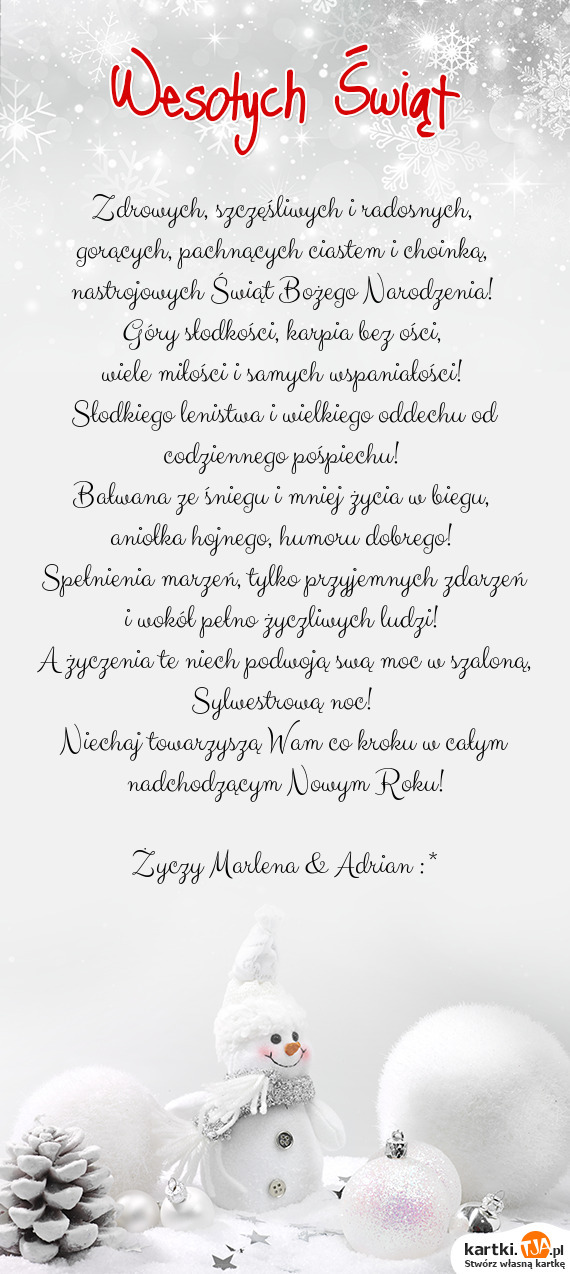 Wesołych Świąt
Zdrowych, szczęśliwych i radosnych,
gorących, pachnących ciastem i choinką,
nastrojowych Świąt Bożego Narodzenia!
Góry słodkości, karpia bez ości,
wiele miłości i samych wspaniałości!
Słodkiego lenistwa i wielkiego oddechu od
codziennego pośpiechu!
Bałwana ze śniegu i mniej życia w biegu,
aniołka hojnego, humoru dobrego!
Spełnienia marzeń, tylko przyjemnych zdarzeń
i wokół pełno życzliwych ludzi!
A życzenia te niech podwoją swą moc w szaloną,
Sylwestrową noc!
Niechaj towarzyszą Wam co kroku w całym
nadchodzącym Nowym Roku!
Życzy Marlena & Adrian :*
kartki.TJA.pl
Stwórz własną kartkę